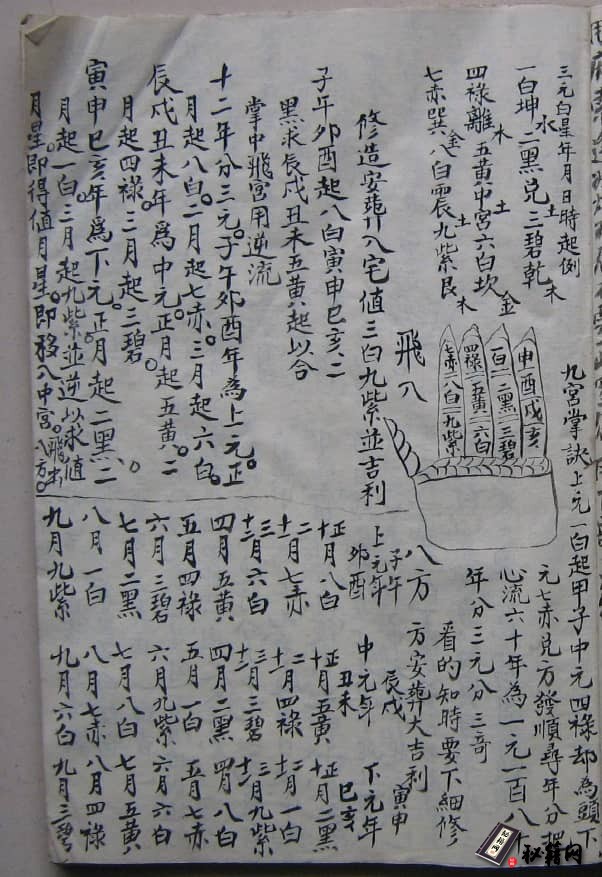 三元白星年月日時起例
一白坤水二黑兌土三碧乾木
四祿離木五黃中宮土六白坎金
七赤巽金八白震土九紫艮木
修造安葬入宅值三白九紫並吉利
子午卯酉起八白寅申巳亥二
黑求辰戌丑未五黃起以合
掌中飛宮用逆流
十二年分三元。子午卯酉年為上元。正
月起八白。二月起七赤。三月起六白。
辰戌丑未年為中元。正月起五黃。二
月起四祿。三月起三碧。
寅申巳亥年為下元。正月起二黑。二
月起一白。三月起九紫。並逆以求值
月星。即得值月星。即移入中宮。飛出八方。
九宮掌訣上元一白起甲子中元四祿却為頭下
元七赤兌方發順尋年分把
心流六十年為一元一百八十
年分三元分三奇
看的知時要下細修
方安葬大吉利
飛八
八方
申酉戌亥
一白二黑三碧
四祿五黃六白
七赤八白九紫
子午卯酉上元年
正十月八白
二十一月七赤
三十二月六白
四月五黃
五月四祿
六月三碧
七月二黑
八月一白
九月九紫
辰戌丑未中元年
正十月五黃
二十一月四祿
三十二月三碧
四月二黑
五月一白
六月九紫
七月八白
八月七赤
九月六白
寅申巳亥下元年
正十月二黑
二十一月一白
三十二月九紫
四月八白
五月七赤
六月六白
七月五黃
八月四祿
九月三碧
秘籍网